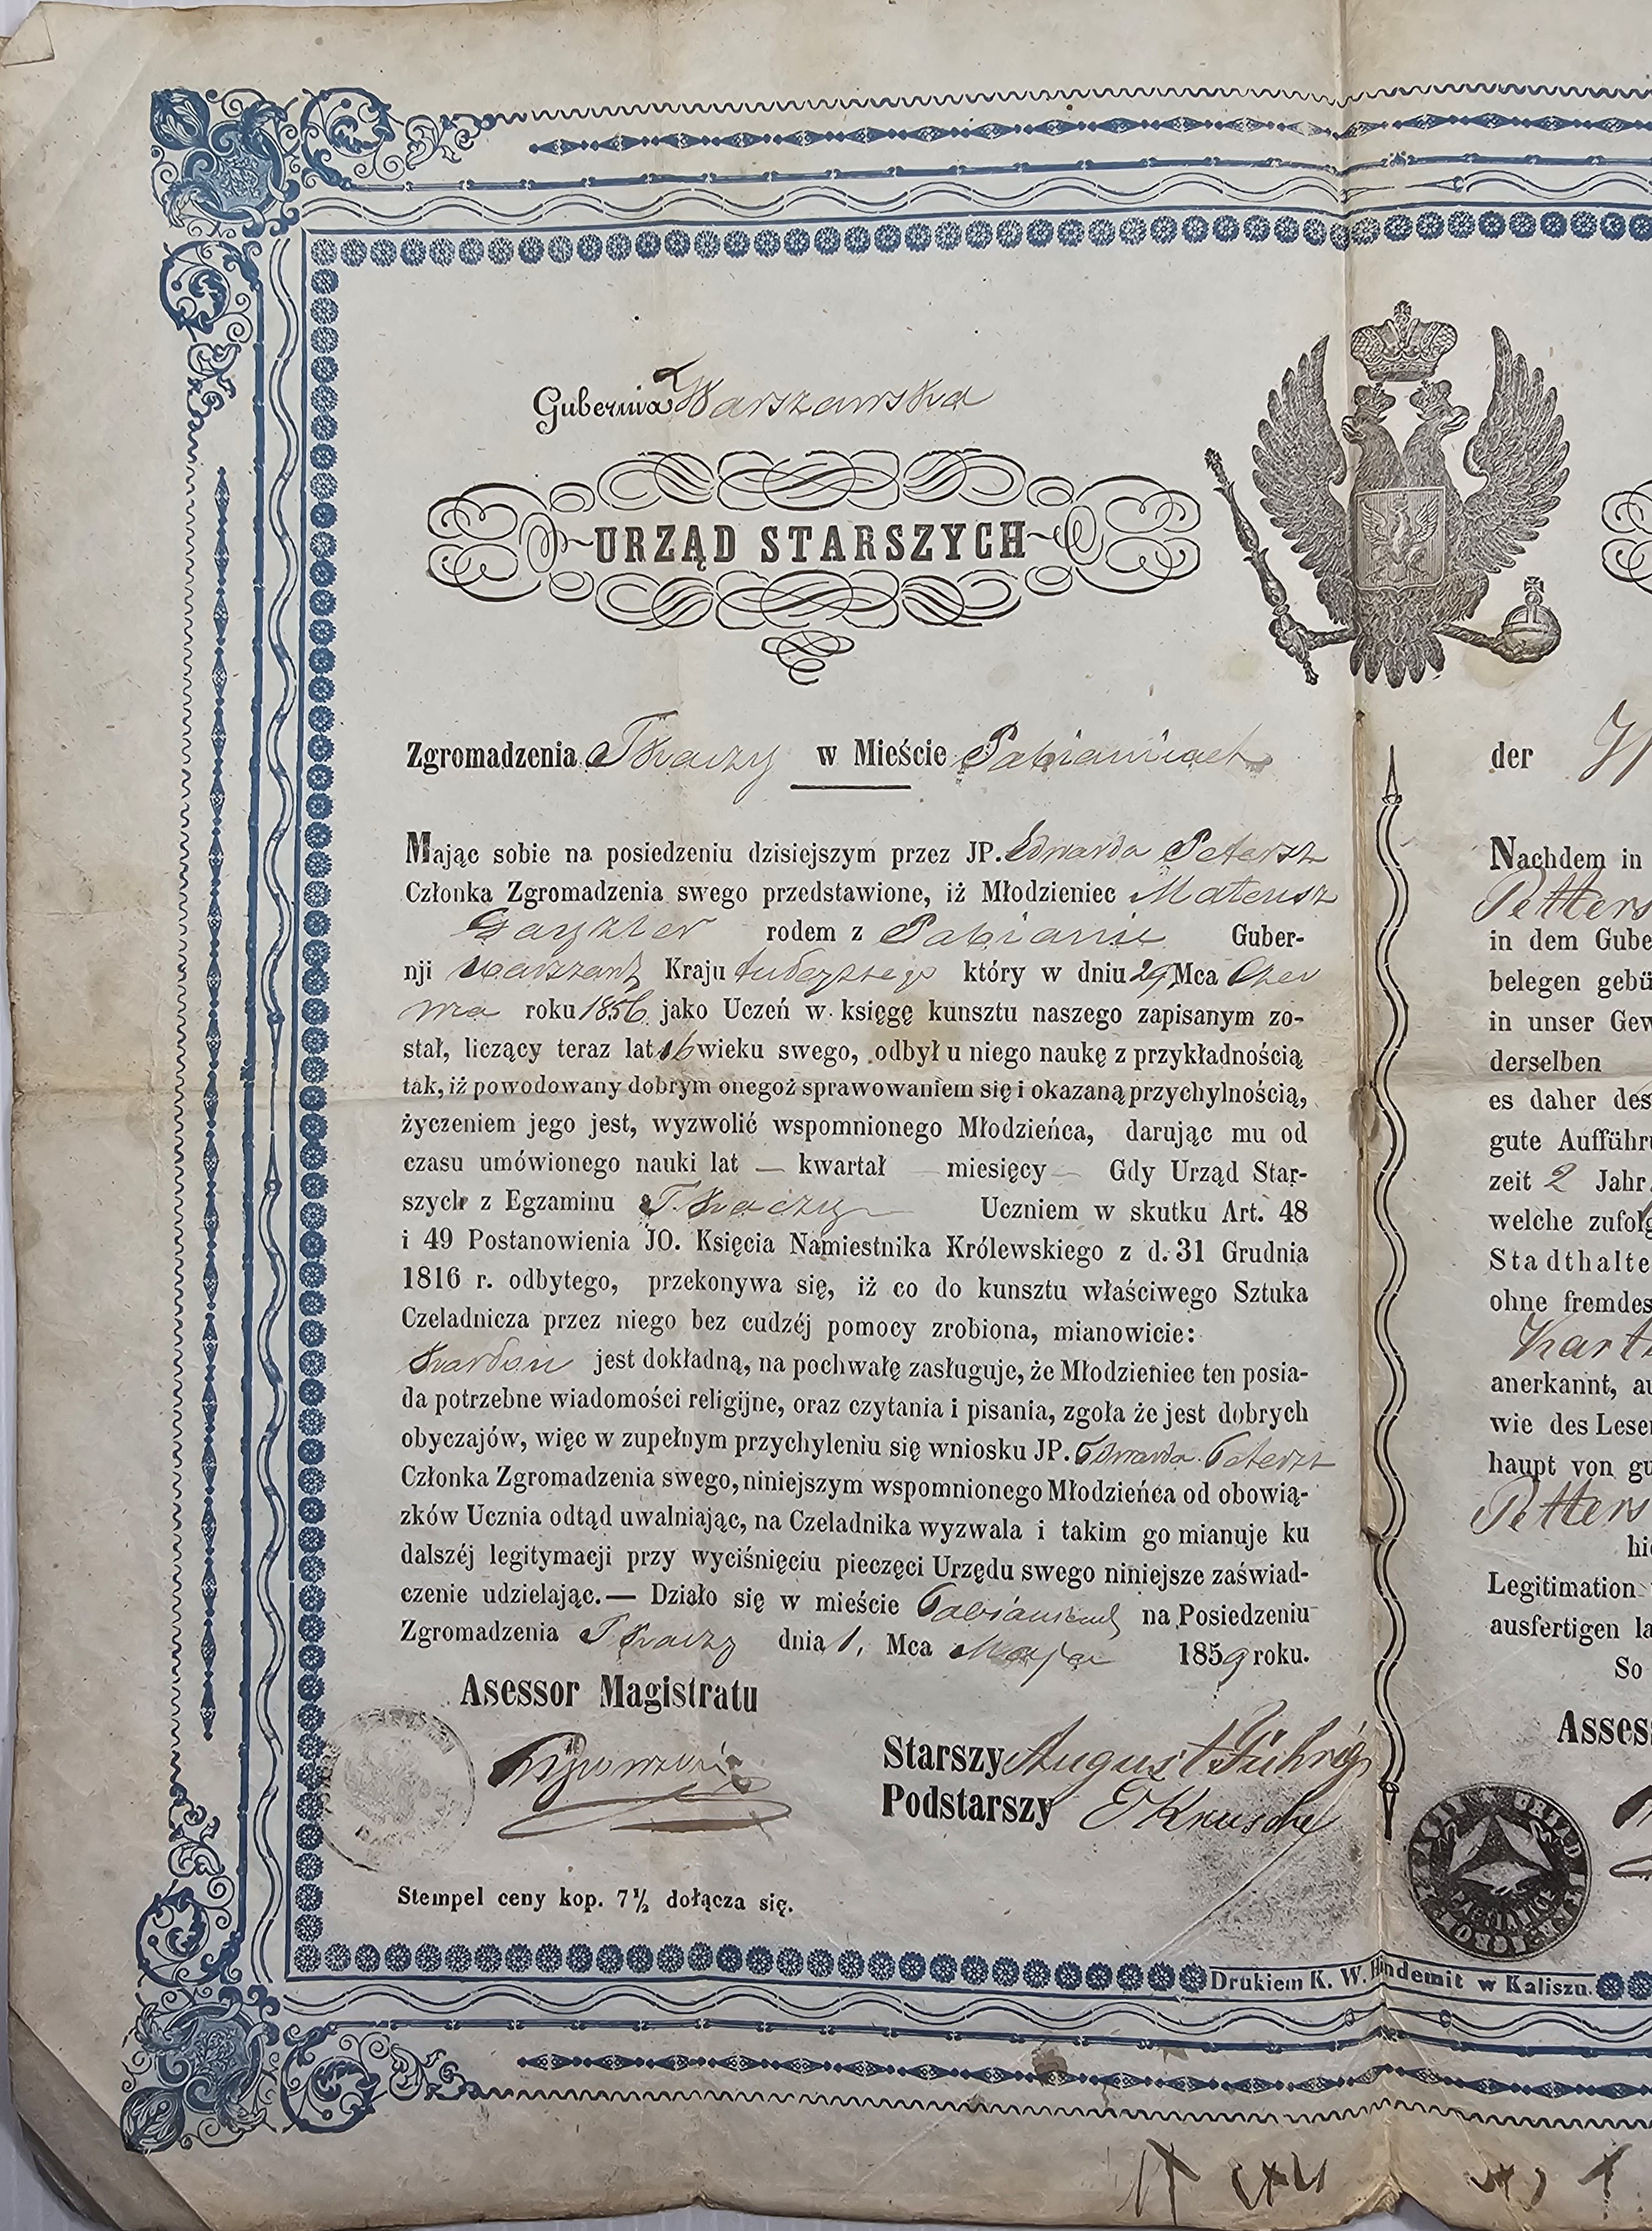 Gubernia Warszawska
URZĄD STARSZYCH
Zgromadzenia Tkaczy w Mieście Pabianicach
Mając sobie na posiedzeniu dzisiejszym przez JP. Edwarda Petersz
Członka Zgromadzenia swego przedstawione, iż Młodzieniec Mateusz
rodem z Pabianic Guber-
nji Warszaws Kraju tudeyszego który w dniu 29 Mca Czer
wca roku 1856 jako Uczeń w księgę kunsztu naszego zapisanym zo-
stał, liczący teraz lat 16 wieku swego, odbył u niego naukę z przykładnością
tak, iż powodowany dobrym onegoż sprawowaniem się i okazaną przychylnością,
życzeniem jego jest, wyzwolić wspomnionego Młodzieńca, darując mu od
czasu umówionego nauki lat — kwartał — miesięcy — Gdy Urząd Star-
szych z Egzaminu Tkaczy Uczniem w skutku Art. 48
i 49 Postanowienia JO. Księcia Namiestnika Królewskiego z d. 31 Grudnia
1816 r. odbytego, przekonywa się, iż co do kunsztu właściwego Sztuka
Czeladnicza przez niego bez cudzéj pomocy zrobiona, mianowicie:
jest dokładną, na pochwałę zasługuje, że Młodzieniec ten posia-
da potrzebne wiadomości religijne, oraz czytania i pisania, zgoła że jest dobrych
obyczajów, więc w zupełnym przychyleniu się wniosku JP. Edwarda Petersz
Członka Zgromadzenia swego, niniejszym wspomnionego Młodzieńca od obowią-
zków Ucznia odtąd uwalniając, na Czeladnika wyzwala i takim go mianuje ku
dalszéj legitymacji przy wyciśnięciu pieczęci Urzędu swego niniejsze zaświad-
czenie udzielając.— Działo się w mieście Pabianicach na Posiedzeniu
Zgromadzenia Tkaczy dnia 1, Mca Maja 1859 roku.
Asessor Magistratu
Starszy August
Podstarszy E Krusche
Stempel ceny kop. 7½ dołącza się.
Drukiem K. W. Hindemit w Kaliszu.
der
Nachdem in
Petters
in dem Gube
belegen gebü
in unser Gew
derselben
es daher des
gute Aufführu
zeit 2 Jahr
welche zufolg
Stadthalte
ohne fremdes
Kart
anerkannt, au
wie des Lese
haupt von gu
Petters
hie
Legitimation
ausfertigen la
So
Assess